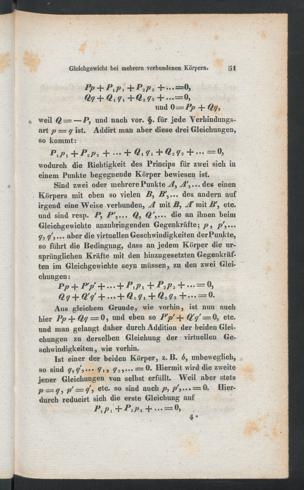 Gleichgewicht bei mehrern verbundenen Körpern. 51
Pp + P₁p₁ + P₂p₂ + ...=0,
Qq + Q₁q₁ + Q₂q₂ + ...=0,
und 0=Pp + Qq,
weil Q = — P, und nach vor. §. für jede Verbindungs-
art p = q ist. Addirt man aber diese drei Gleichungen,
so kommt:
P₁p₁ + P₂p₂ + ... + Q₁q₁ + Q₂q₂ + ... = 0,
wodurch die Richtigkeit des Princips für zwei sich in
einem Punkte begegnende Körper bewiesen ist.
Sind zwei oder mehrere Punkte A, A',... des einen
Körpers mit eben so vielen B, B',... des andern auf
irgend eine Weise verbunden, A mit B, A' mit B', etc.
und sind resp. P, P',... Q, Q',... die an ihnen beim
Gleichgewichte anzubringenden Gegenkräfte; p, p',...
q, q',... aber die virtuellen Geschwindigkeiten der Punkte,
so führt die Bedingung, dass an jedem Körper die ur-
sprünglichen Kräfte mit den hinzugesetzten Gegenkräf-
ten im Gleichgewichte seyn müssen, zu den zwei Glei-
chungen:
Pp + P'p' + ... + P₁p₁ + P₂p₂ + ... = 0,
Qq + Q'q' + ... + Q₁q₁ + Q₂q₂ + ... = 0.
Aus gleichem Grunde, wie vorhin, ist nun auch
hier Pp + Qq = 0, und eben so P'p' + Q'q' = 0, etc.
und man gelangt daher durch Addition der beiden Glei-
chungen zu derselben Gleichung der virtuellen Ge-
schwindigkeiten, wie vorhin.
Ist einer der beiden Körper, z. B. b, unbeweglich,
so sind q, q',... q₁, q₂,... = 0. Hiermit wird die zweite
jener Gleichungen von selbst erfüllt. Weil aber stets
p = q, p' = q', etc. so sind auch p, p',... = 0. Hier-
durch reducirt sich die erste Gleichung auf
P₁p₁ + P₂p₂ + ... = 0,
4 *